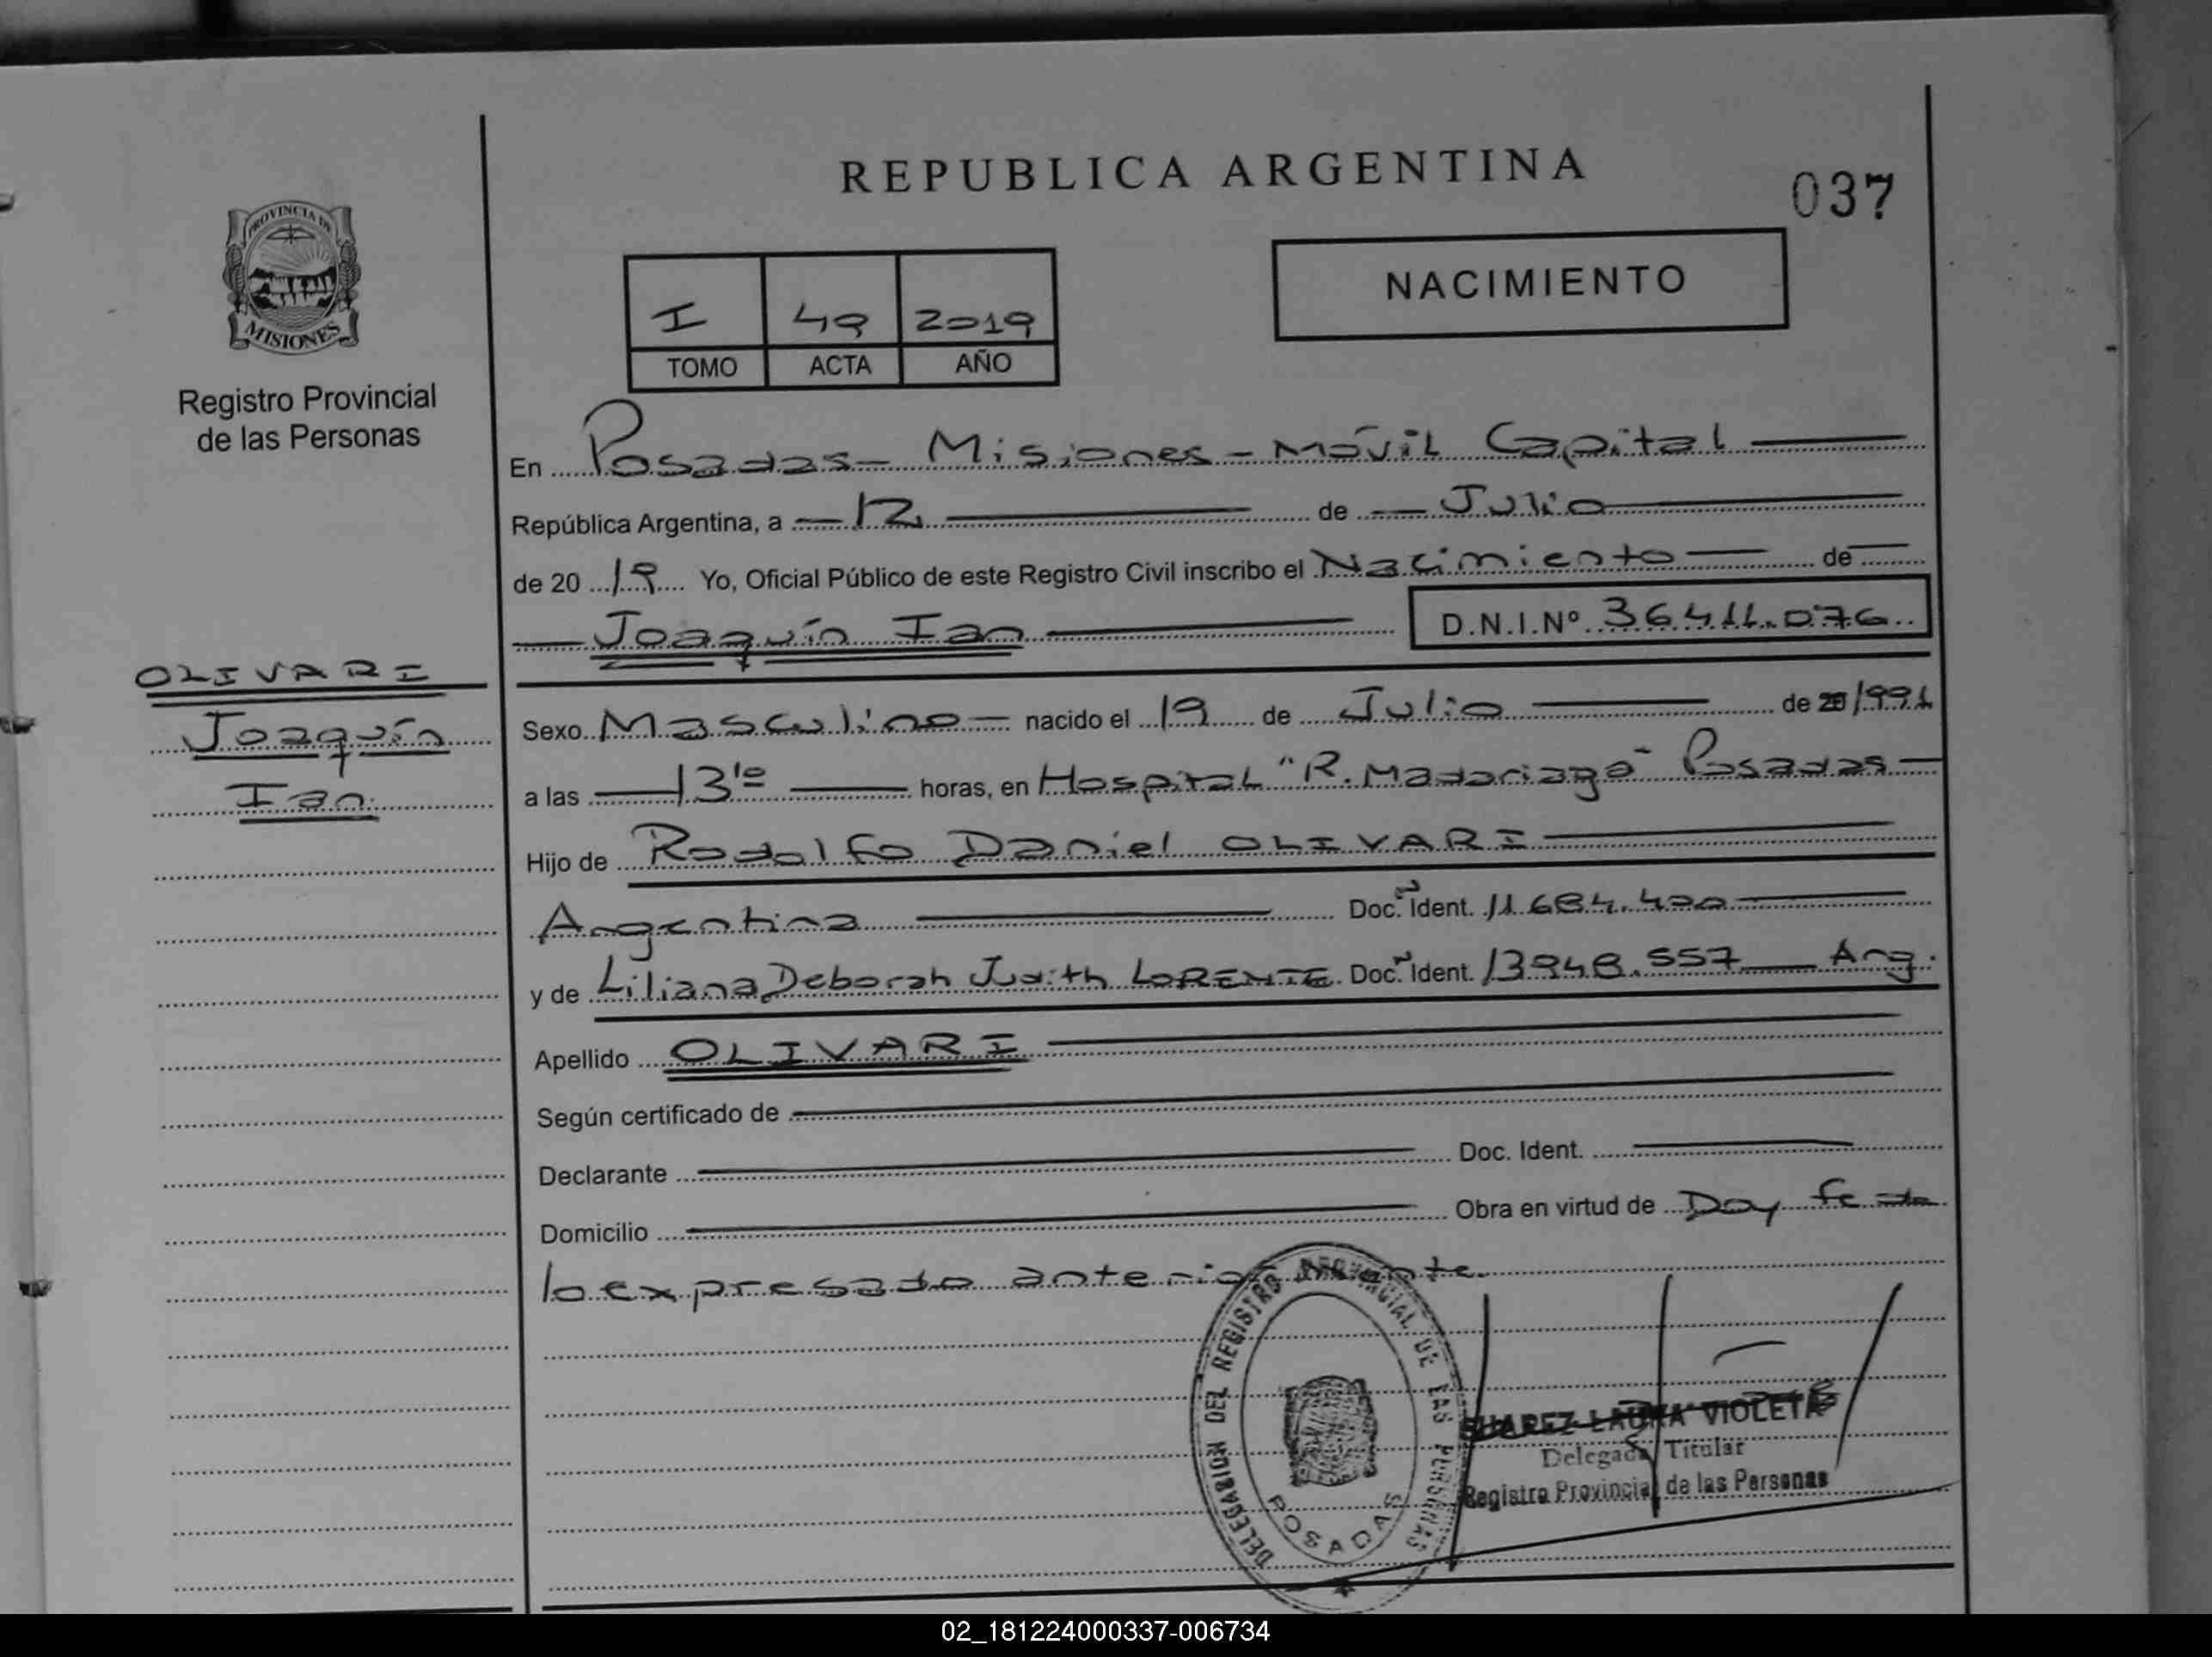 REPUBLICA ARGENTINA
037
PROVINCIA DE
MISIONES
Registro Provincial
de las Personas
NACIMIENTO
I 49 2019
TOMO ACTA AÑO
En Posadas - Misiones - Móvil Capital
República Argentina, a 12 de Julio
de 2019 Yo, Oficial Público de este Registro Civil inscribo el Nacimiento de
Joaquín Ian D.N.I.Nº 36.411.076
OLIVARI
Joaquín
Ian
Sexo Masculino nacido el 19 de Julio de 1991
a las 13 10 horas, en Hospital "R. Madariaga" Posadas
Hijo de Rodolfo Daniel OLIVARI
Argentina Doc. Ident. 11.684.420
y de Liliana Deborah Judith LORENTE Doc. Ident. 13948.557 Arg.
Apellido OLIVARI
Según certificado de
Declarante Doc. Ident.
Domicilio Obra en virtud de Doy fe de
lo expresado anteriormente.
DELEGACION DEL REGISTRO PROVINCIAL DE LAS PERSONAS
POSADAS
SUAREZ LAURA VIOLETA
Delegada Titular
Registro Provincial de las Personas
02_181224000337-006734